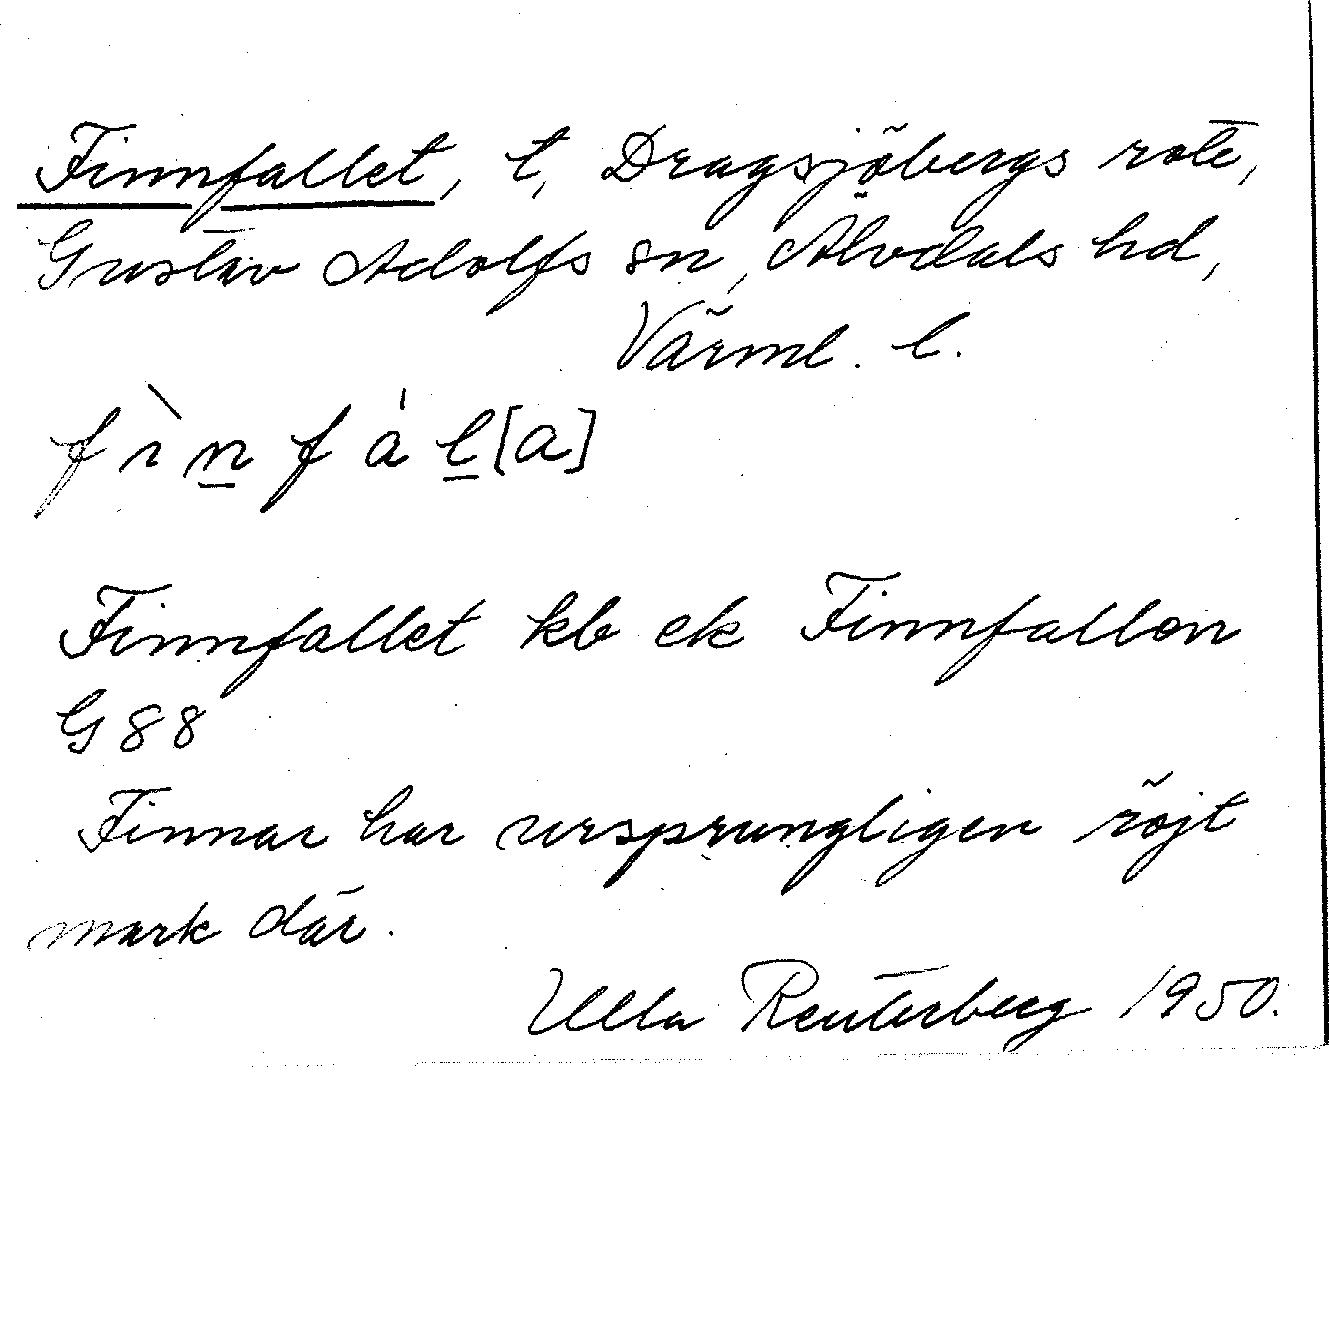 Finnfallet, t, Dragsjöbergs rote,
Gustav Adolfs sn, Älvdals hd,
Värml. l.
fìnfàl[a]
Finnfallet kb ek Finnfallen
G 88
Finnar har ursprungligen röjt
mark där.
Ulla Reuterberg 1950.